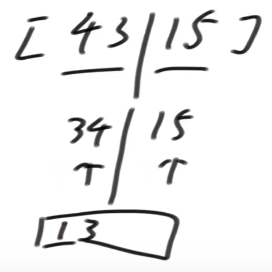 [ 43 | 15 ]
34 | 15
↑ ↑
13